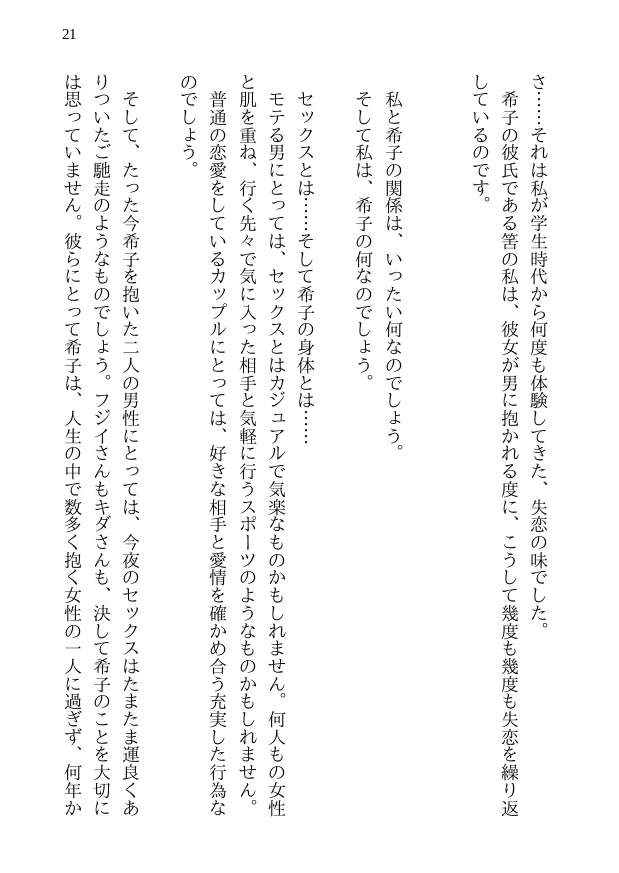 21
さ……それは私が学生時代から何度も体験してきた、失恋の味でした。
希子の彼氏である筈の私は、彼女が男に抱かれる度に、こうして幾度も幾度も失恋を繰り返
しているのです。
私と希子の関係は、いったい何なのでしょう。
そして私は、希子の何なのでしょう。
セックスとは……そして希子の身体とは……
モテる男にとっては、セックスとはカジュアルで気楽なものかもしれません。何人もの女性
と肌を重ね、行く先々で気に入った相手と気軽に行うスポーツのようなものかもしれません。
普通の恋愛をしているカップルにとっては、好きな相手と愛情を確かめ合う充実した行為な
のでしょう。
そして、たった今希子を抱いた二人の男性にとっては、今夜のセックスはたまたま運良くあ
りついたご馳走のようなものでしょう。フジイさんもキダさんも、決して希子のことを大切に
は思っていません。彼らにとって希子は、人生の中で数多く抱く女性の一人に過ぎず、何年か